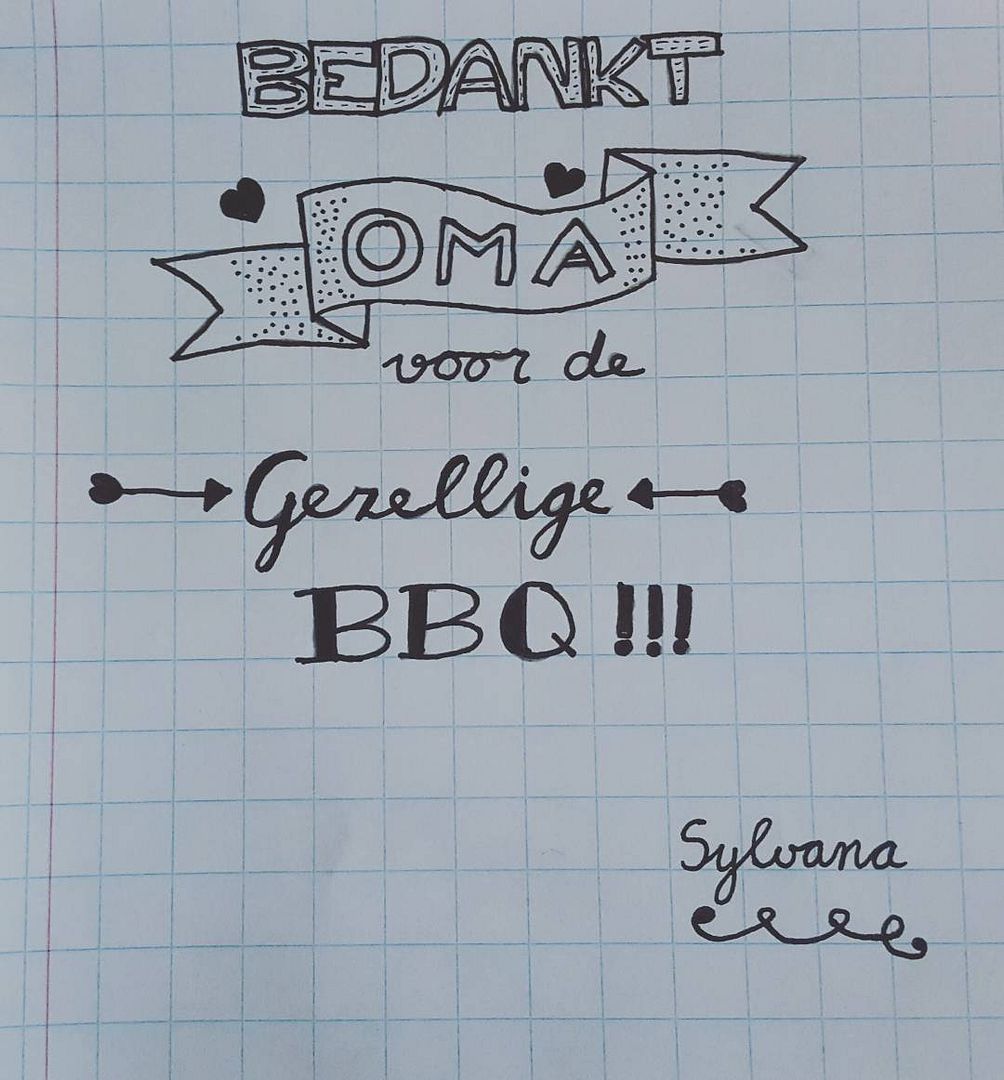 BEDANKT
OMA
voor de
Gezellige
BBQ !!!
Sylvana